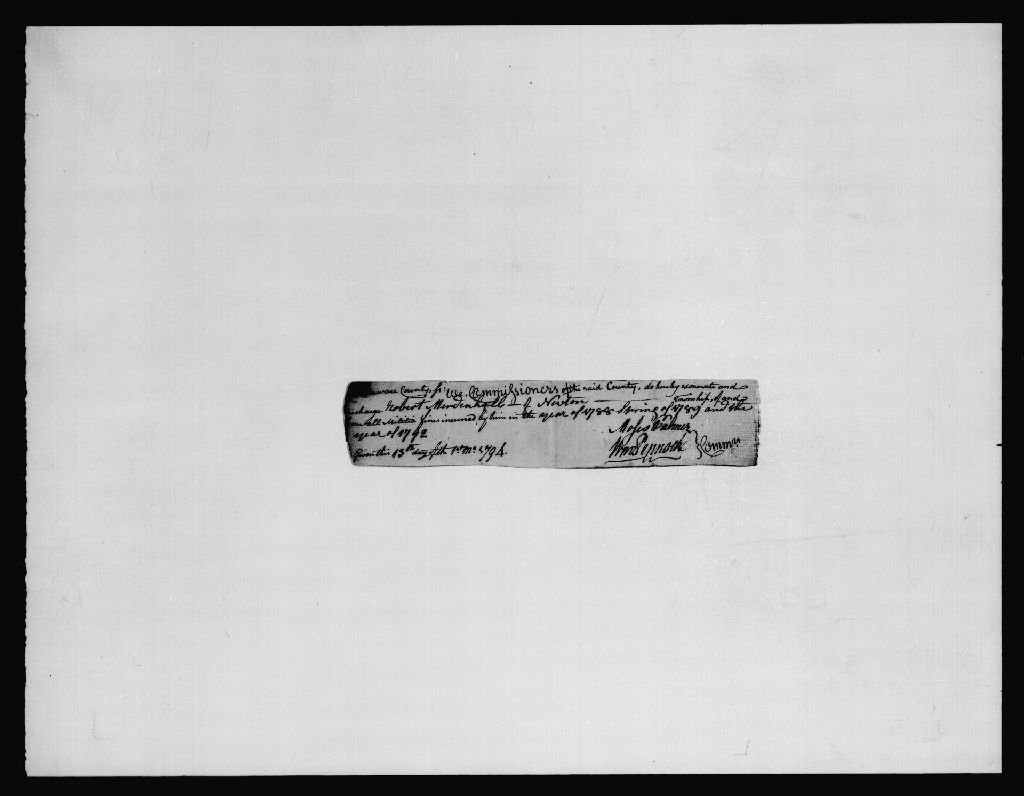 Delaware County, ss: We Commissioners of the said County, do hereby exonerate and
discharge Robert Mendenhall of Newton Township, of and
from all Militia fines incurred by him in the year of 1788 Spring of 1789 and the
year of 1792
Given this 13th day of the 1st mo: 1794.
Moses Palmer
Wm Pennock
Comms